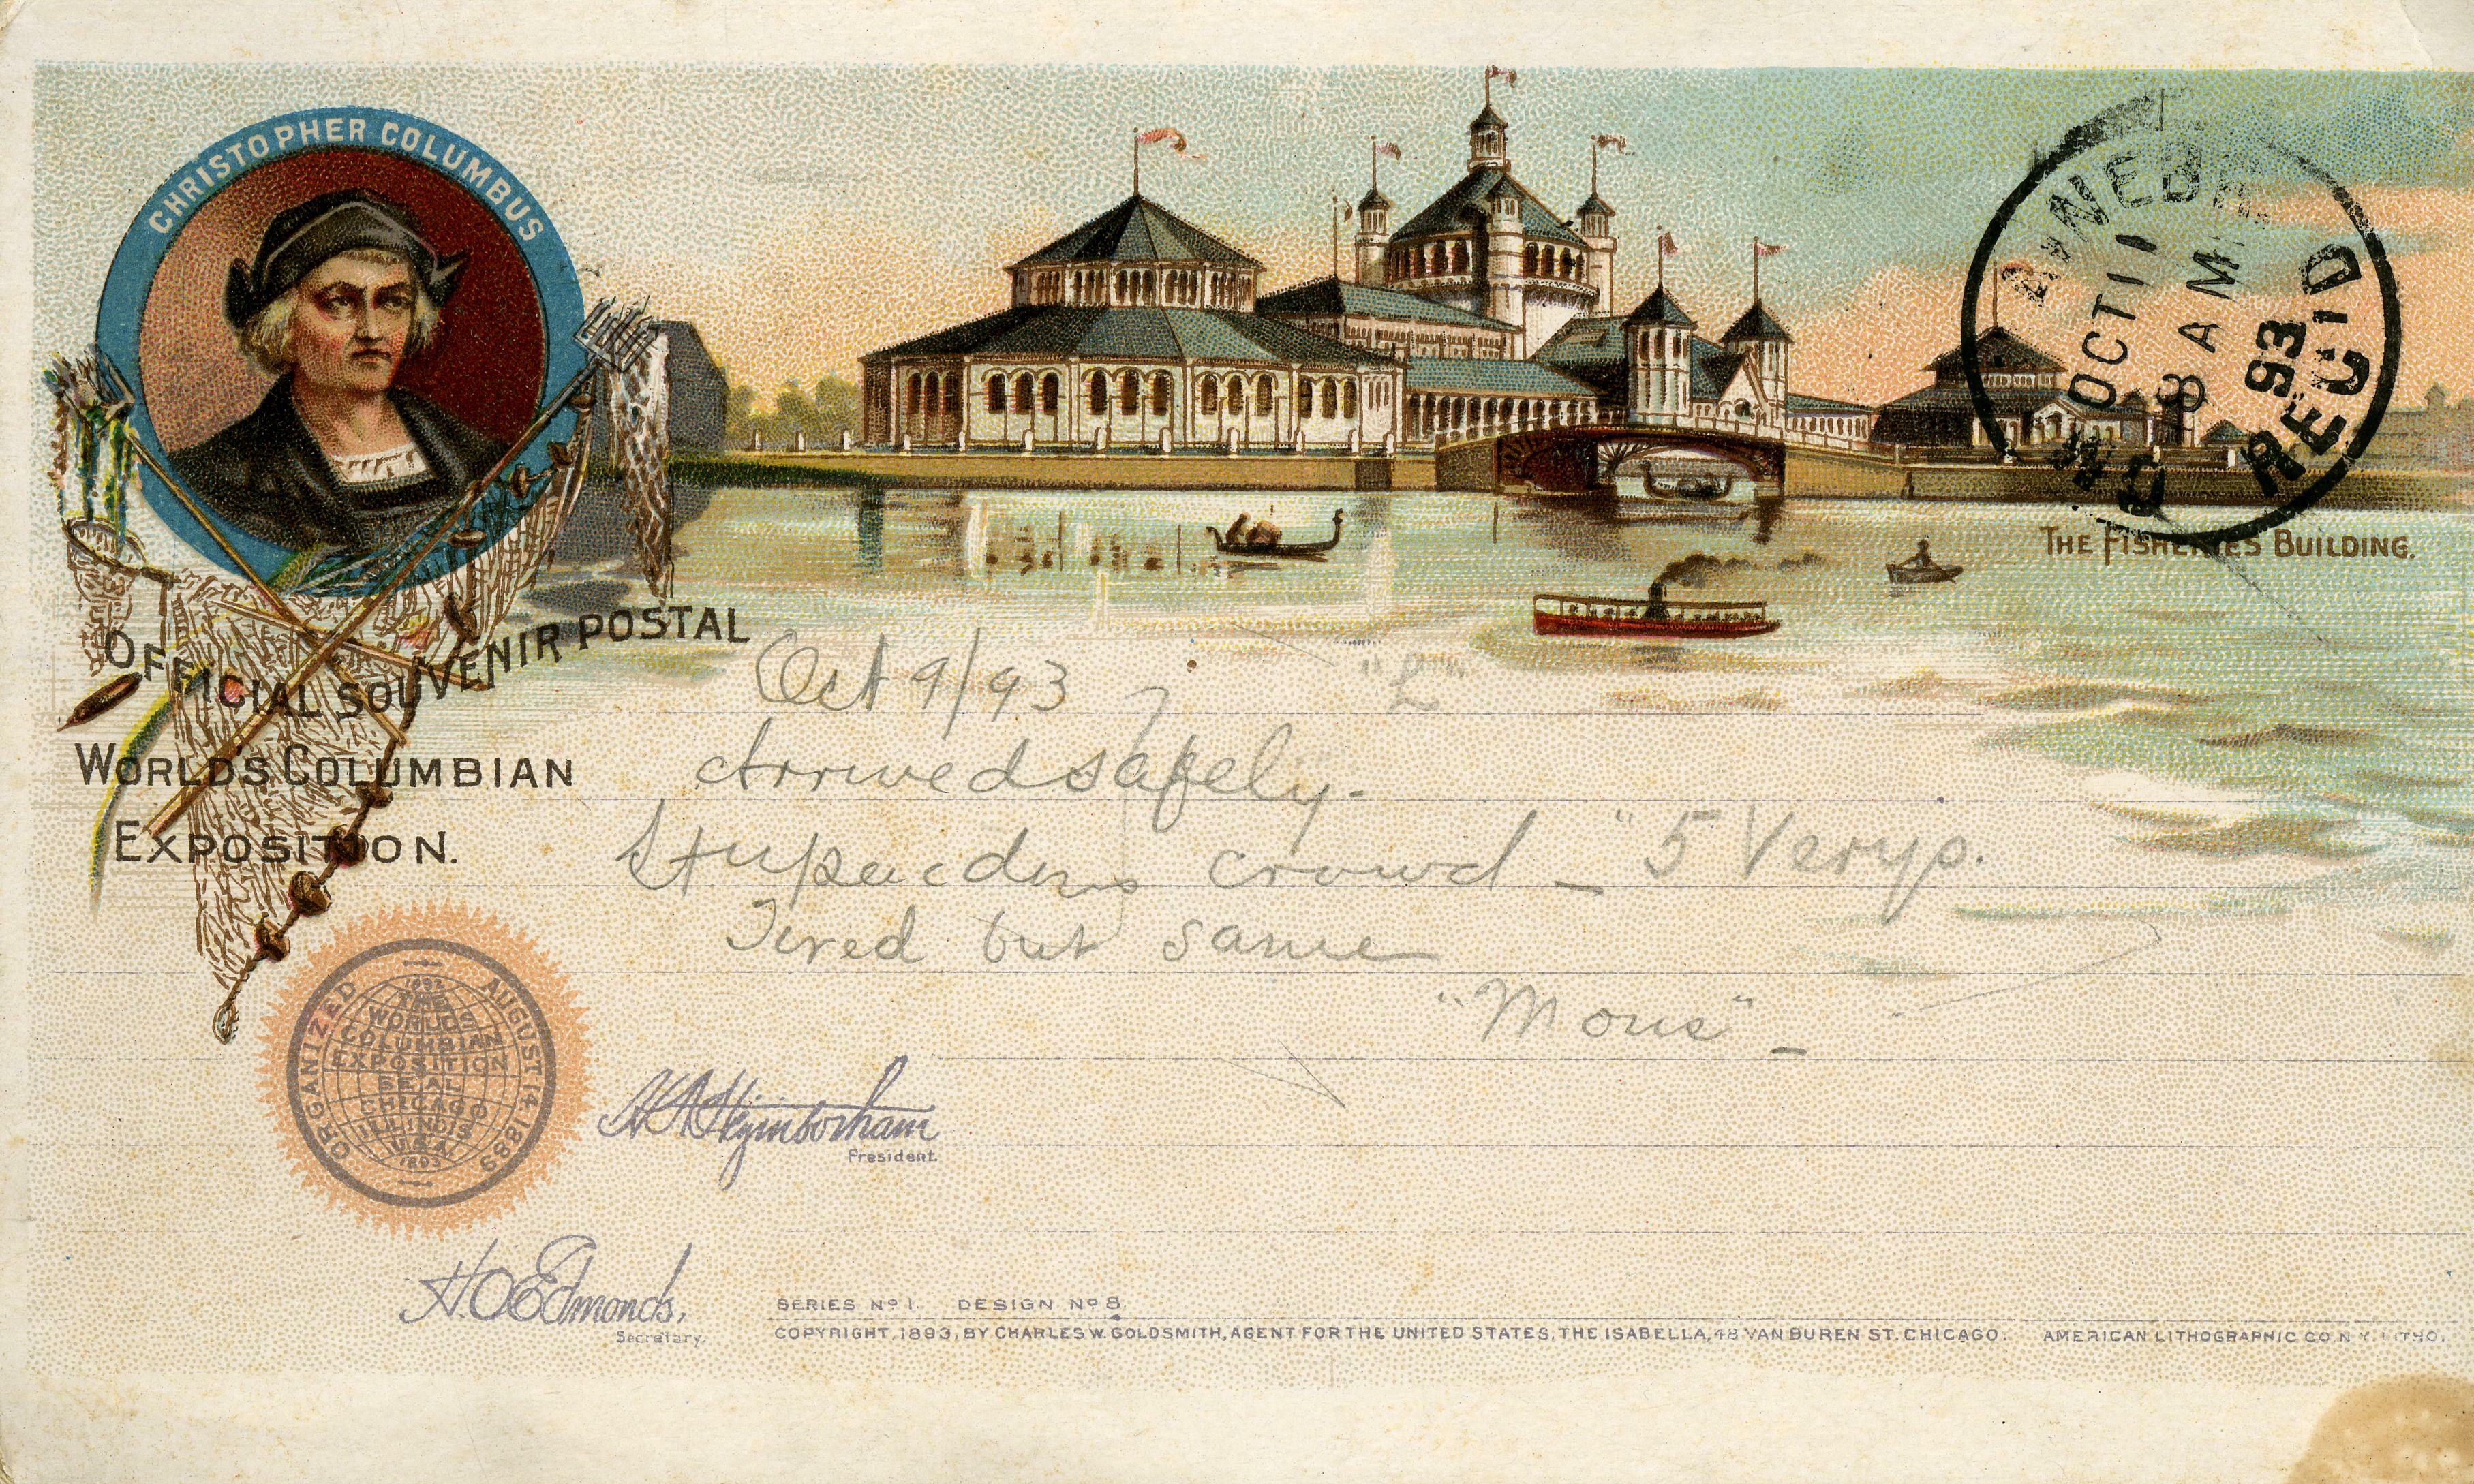 CHRISTOPHER COLUMBUS
OCT 11
8 AM
93
REC'D
THE FISHERIES BUILDING.
OFFICIAL SOUVENIR POSTAL
WORLD'S COLUMBIAN
EXPOSITION.
Oct 9/93 "L"
Arrived safely.
Stupendous crowd – "5 Verys.
Tired but same
ORGANIZED AUGUST 14 1889
1892
THE
WORLD'S
COLUMBIAN
EXPOSITION
SEAL
CHICAGO
ILLINOIS
U.S.A.
1893
President.
H.O. Edmonds,
Secretary.
SERIES No 1. DESIGN No 8.
COPYRIGHT, 1893, BY CHARLES W. GOLDSMITH, AGENT FOR THE UNITED STATES, THE ISABELLA, 48 VAN BUREN ST. CHICAGO. AMERICAN LITHOGRAPHIC CO. N.Y. LITHO.